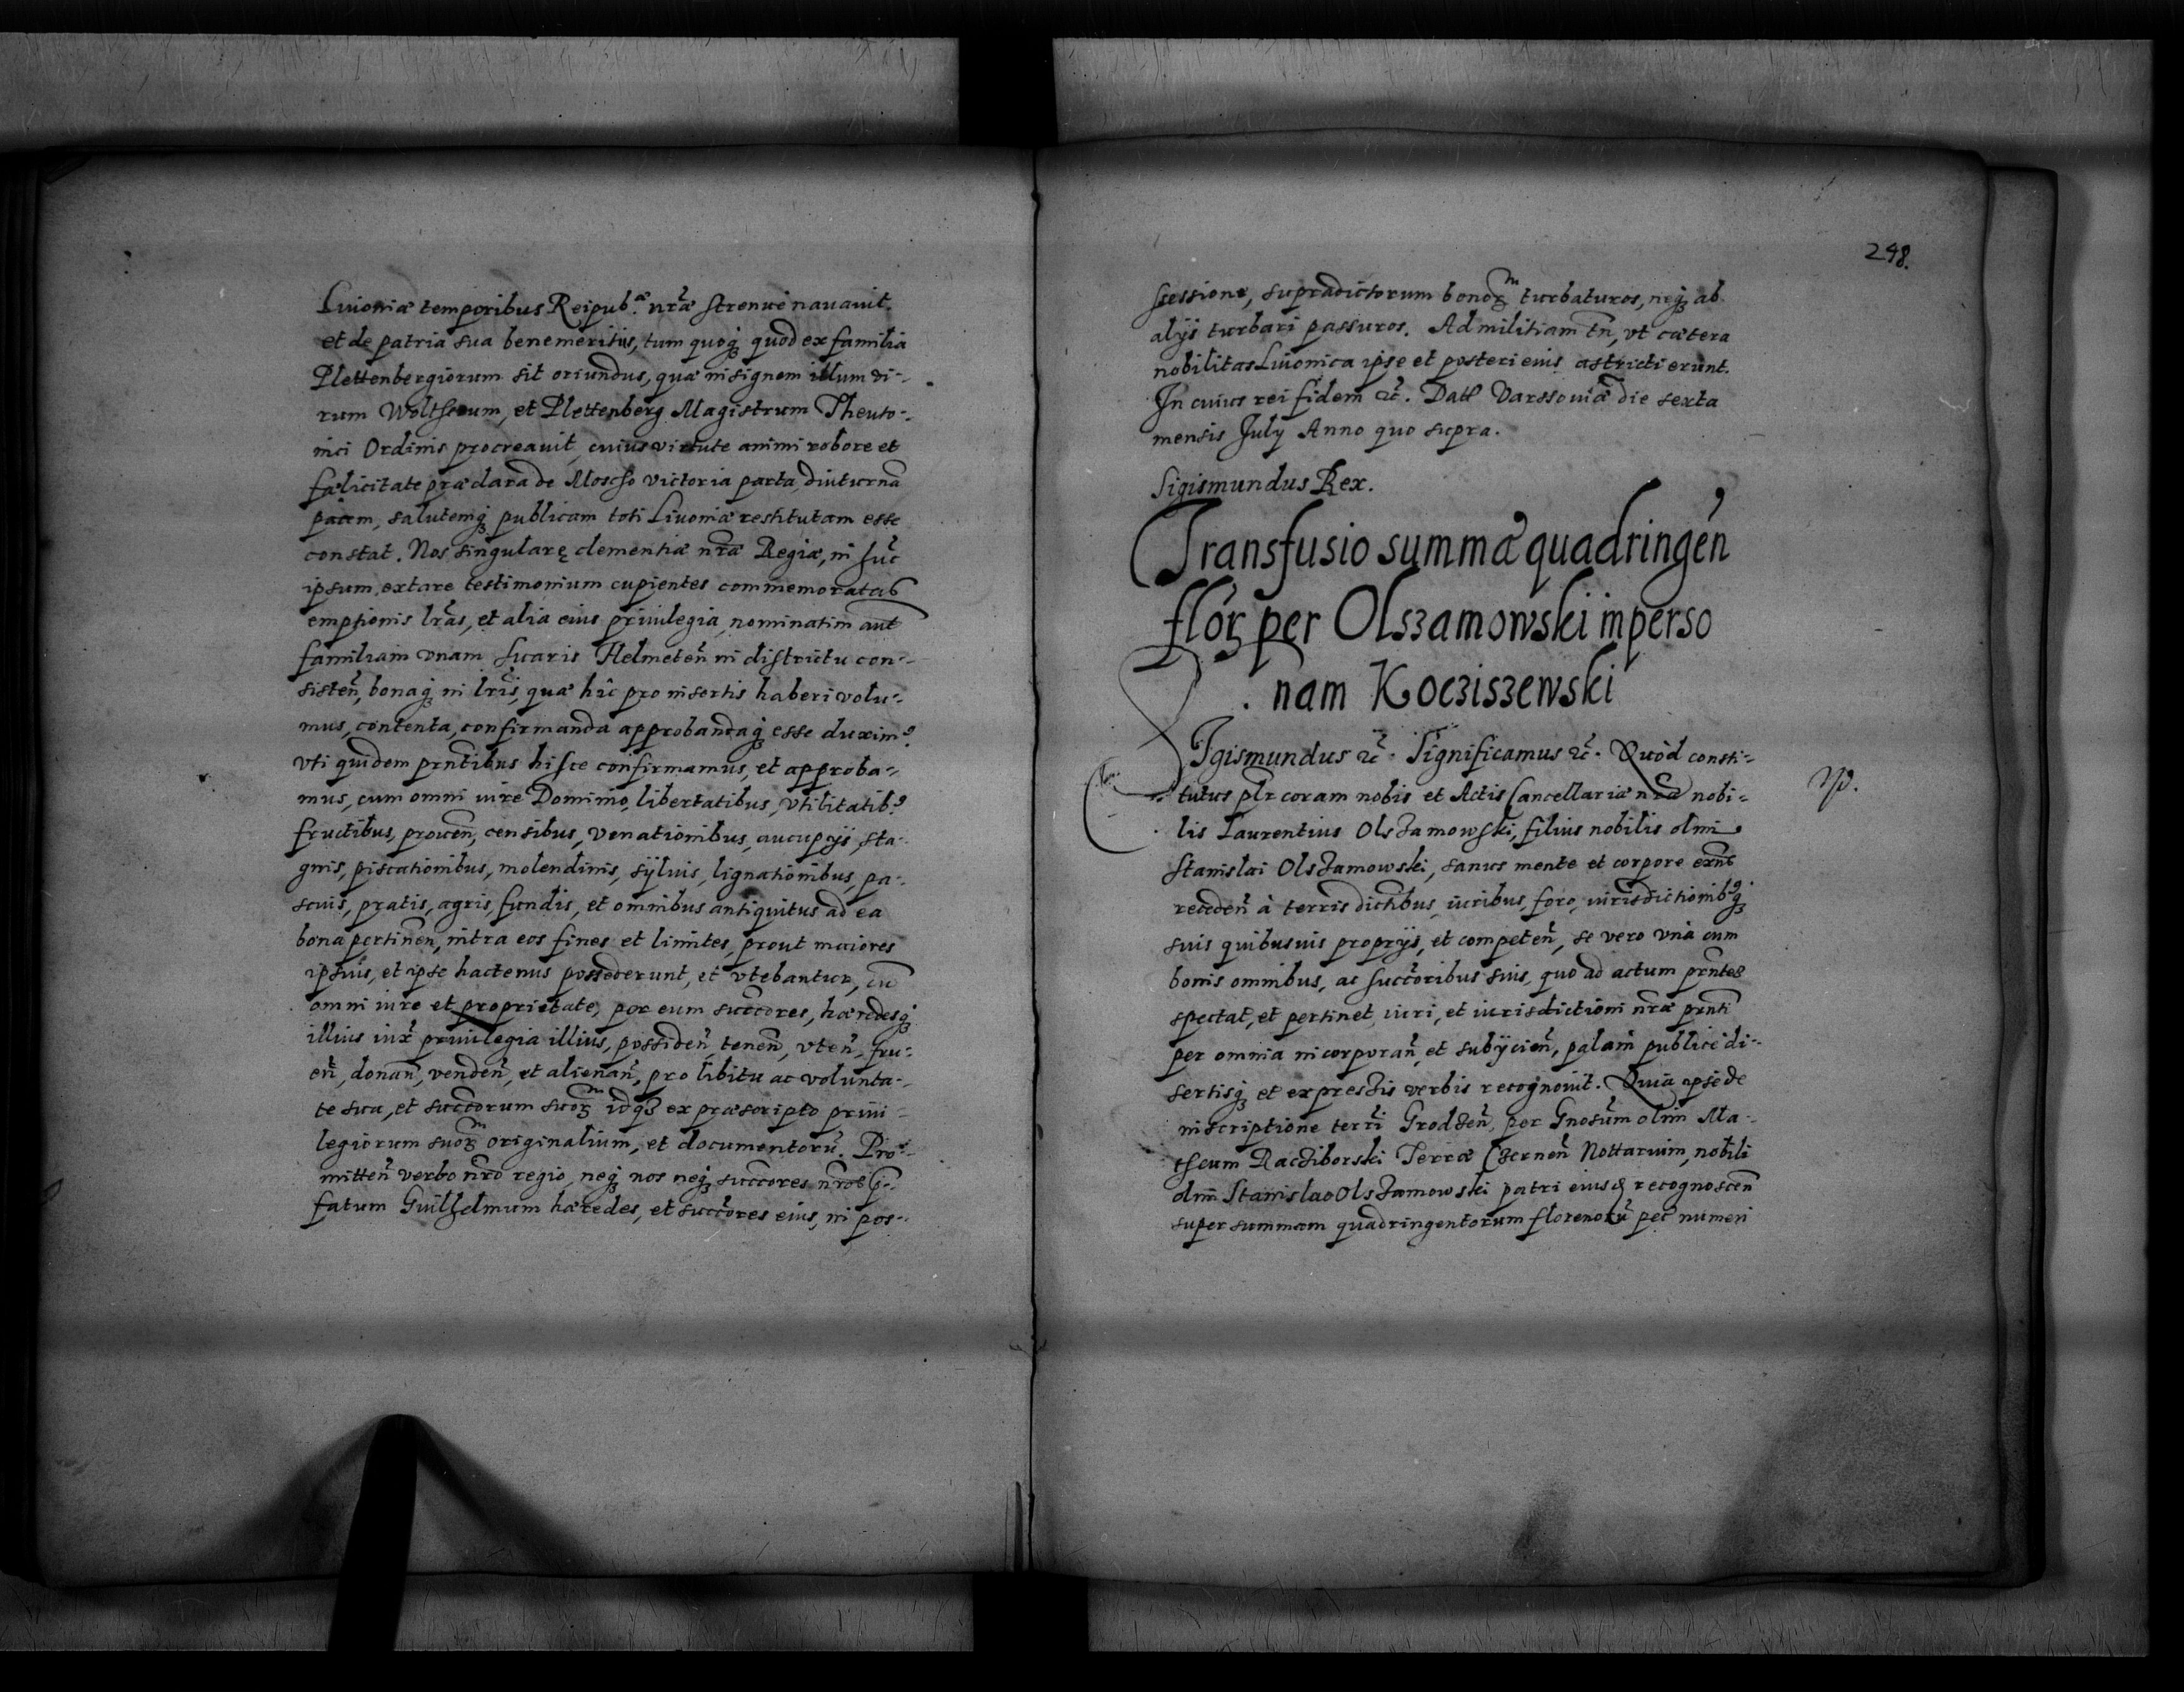 Liuoniæ temporibus Reipub.æ nræ strenuè nauauit.
et de patria sua benemeritus, tum quoq₃ quod ex familia
Plettenbergiorum sit oriundus, quæ insignem illum vi-
rum Woltherum, et Plettenberg Magistrum Theuto-
nici Ordinis procreauit, cuius virtute animi robore et
fælicitate præclara de Moscho victoria parta, diuturnã
pacem, salutemq₃ publicam toti Liuoniæ restitutam esse
constat. Nos singularę clementiæ nræ Regiæ, in huc
ipsum extare testimonium cupientes commemoratas
emptionis lras, et alia eius priuilegia, nominatim aut
familiam vnam Helmeten in districtu con-
sisten, bonaq₃ in lris, quæ hîc pro insertis haberi volu-
mus, contenta, confirmanda approbandaq₃ esse duxim9.
vti quidem prntibus hisce confirmamus, et approba-
mus, cum omni iure Dominio, libertatibus, vtilitatib9
fructibus, prouen, censibus, venationibus, aucupijs, sta-
gnis, piscationibus, molendinis, syluis, lignationibus, pa-
scuis, pratis, agris, fundis, et omnibus antiquitus ad ea
bona pertinen, intra eos fines et limites, prout maiores
ipsius, et ipse hactenus possederunt, et vtebantur, cũ
omni iure et proprietate, per eum succores, hæredesq₃
illius iux priuilegia illius, possiden, tenen, vten, fru-
en, donan, venden, et alienan, pro libitu ac volunta-
te sua, et succorum suor idq₃ ex præscripto priui-
legiorum suor originalium, et documentorũ. Pro-
mitten verbo nro regio, neq₃ nos neq₃ succores nros
fatum Guilhelmum hæredes, et succores eius, in pos-
248.
sessione, supradictorum bonor turbaturos, neq₃ ab
alijs turbari passuros. Ad militiam tn, vt cætera
nobilitas Liuonica ipse et posteri eius astricti erunt.
In cuius rei fidem etc. Dat Varssouiæ die sexta
mensis July Anno quo supra.
Sigismundus Rex.
Transfusio summæ quadringen
flor per Olszamowski in perso
nam Kocziszewski
Sigismundus etc. Significamus etc. Quòd consti-
tutus plr coram nobis et Actis Cancellariæ nræ nobi-
lis Laurentius Olszamowski, filius nobilis olmi
Stanislai Olszamowski, sanus mente et corpore exns
receden à terris dictibus, iuribus, foro, iurisdictionib9q₃
suis quibusuis proprijs, et competen, se vero vnà cum
bonis omnibus, ac succoribus suis, quo ad actum prntes
spectat, et pertinet, iuri, et iurisdictioni nræ prnti
per omnia incorporan, et subijcien, palam publicè di-
sertisq₃ et expressis verbis recognouit. Quia ipse de
inscriptione terri Grodzen, per Gnosum olim Ma-
theum Racziborski Terræ Czernen Nottarium, nobili
olim Stanislao Olszamowski patri eiusq recognoscen
super summam quadringentorum florenorũ pec numeri